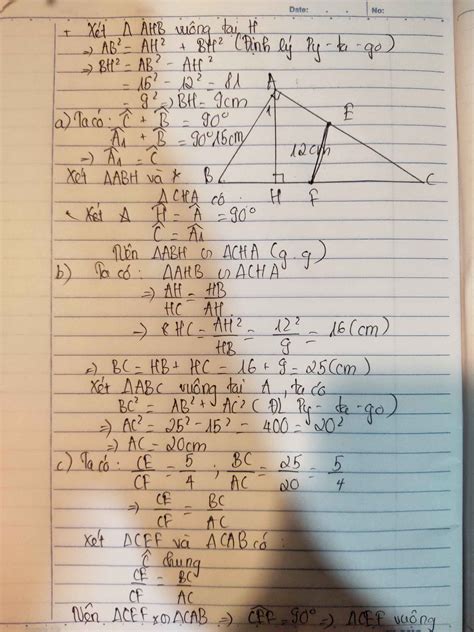 Date: No:
+ Xét Δ AHB vuông tại H
=> AB² = AH² + BH² (Định lý Py-ta-go)
=> BH² = AB² - AH²
= 15² - 12² = 81
= 9² => BH = 9cm
a) Ta có: Ĉ + B̂ = 90°
Â₁ + B̂ = 90°
=> Â₁ = Ĉ
15cm
A
1
E
12cm
B
H
F
C
Xét ΔABH và
ΔCHA có
Xét Δ Ĥ = Â = 90°
Ĉ = Â₁
Nên ΔABH ∽ ΔCHA (g.g)
b) Ta có: ΔAHB ∽ ΔCHA
=> AH/HC = HB/AH
=> HC = AH²/HB = 12²/9 = 16 (cm)
=> BC = HB + HC = 16 + 9 = 25 (cm)
Xét ΔABC vuông tại A, ta có
BC² = AB² + AC² (Đl Py-ta-go)
=> AC² = 25² - 15² = 400 = 20²
=> AC = 20cm
c) Ta có: CE/CF = 5/4 ; BC/AC = 25/20 = 5/4
=> CE/CF = BC/AC
Xét ΔCEF và ΔCAB có:
Ĉ chung
CE/CF = BC/AC
Nên ΔCEF ∽ ΔCAB => CFE = 90° => ΔCEF vuông